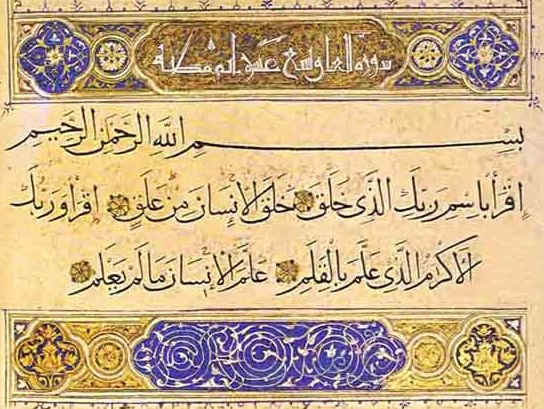 سورة العلق تسع عشرة آية مكية
بِسْمِ اللَّهِ الرَّحْمٰنِ الرَّحِيمِ
اِقْرَأْ بِاسْمِ رَبِّكَ الَّذِى خَلَقَ خَلَقَ الْاِنْسَانَ مِنْ عَلَقٍ اِقْرَأْ وَرَبُّكَ
الْاَكْرَمُ الَّذِى عَلَّمَ بِالْقَلَمِ عَلَّمَ الْاِنْسَانَ مَا لَمْ يَعْلَمْ